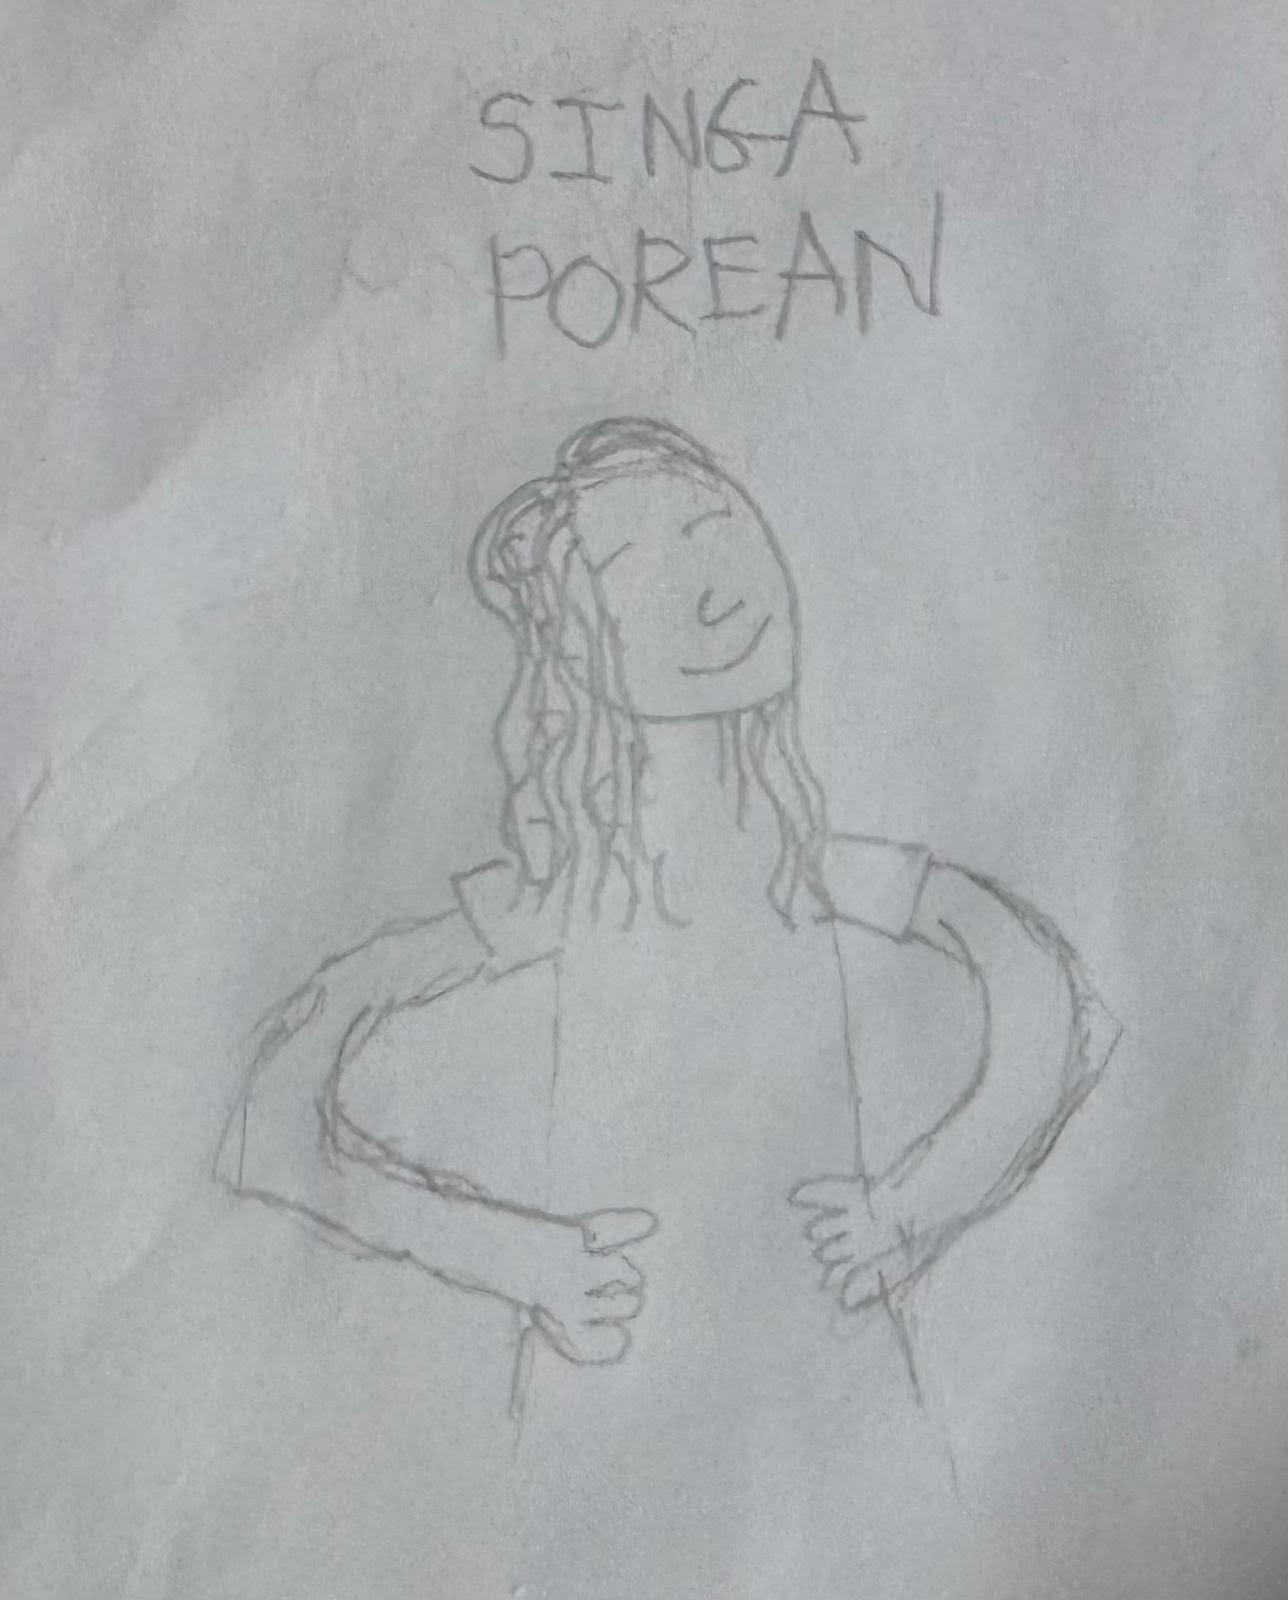 SINGA
POREAN